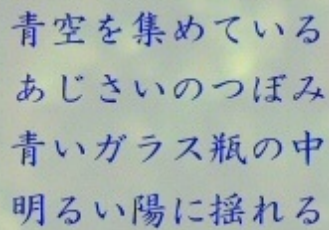 青空を集めている
あじさいのつぼみ
青いガラス瓶の中
明るい陽に揺れる